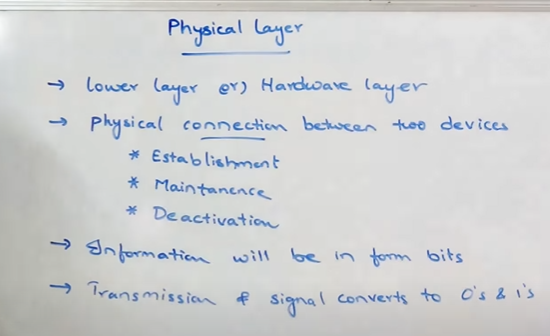 Physical Layer
→ Lower layer or) Hardware layer
→ Physical connection between two devices
* Establishment
* Maintanence
* Deactivation
→ Information will be in form bits
→ Transmission & signal converts to 0's & 1's